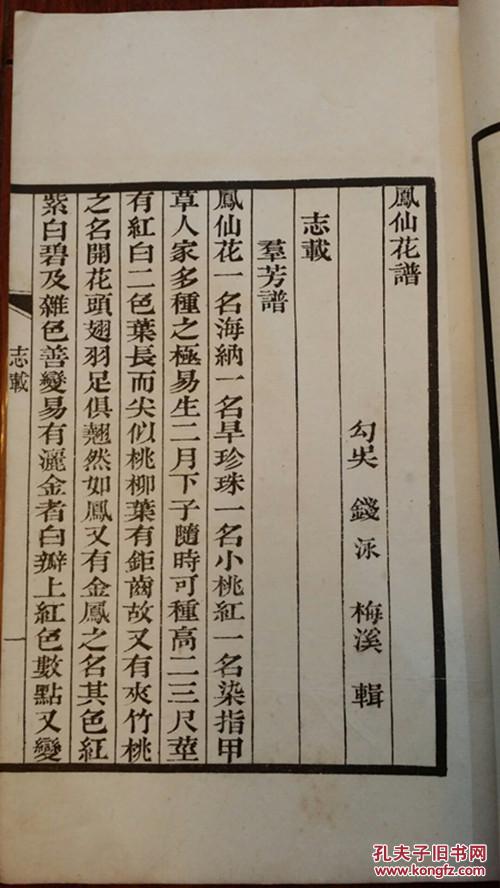 鳳仙花譜
勾吳 錢泳 梅溪 輯
志載
羣芳譜
鳳仙花一名海納一名旱珍珠一名小桃紅一名染指甲
草人家多種之極易生二月下子隨時可種高二三尺莖
有紅白二色葉長而尖似桃柳葉有鉅齒故又有夾竹桃
之名開花頭翅羽足俱翹然如鳳又有金鳳之名其色紅
紫白碧及雜色善變易有灑金者白瓣上紅色數點又變
志載
一
孔夫子旧书网
www.kongfz.com